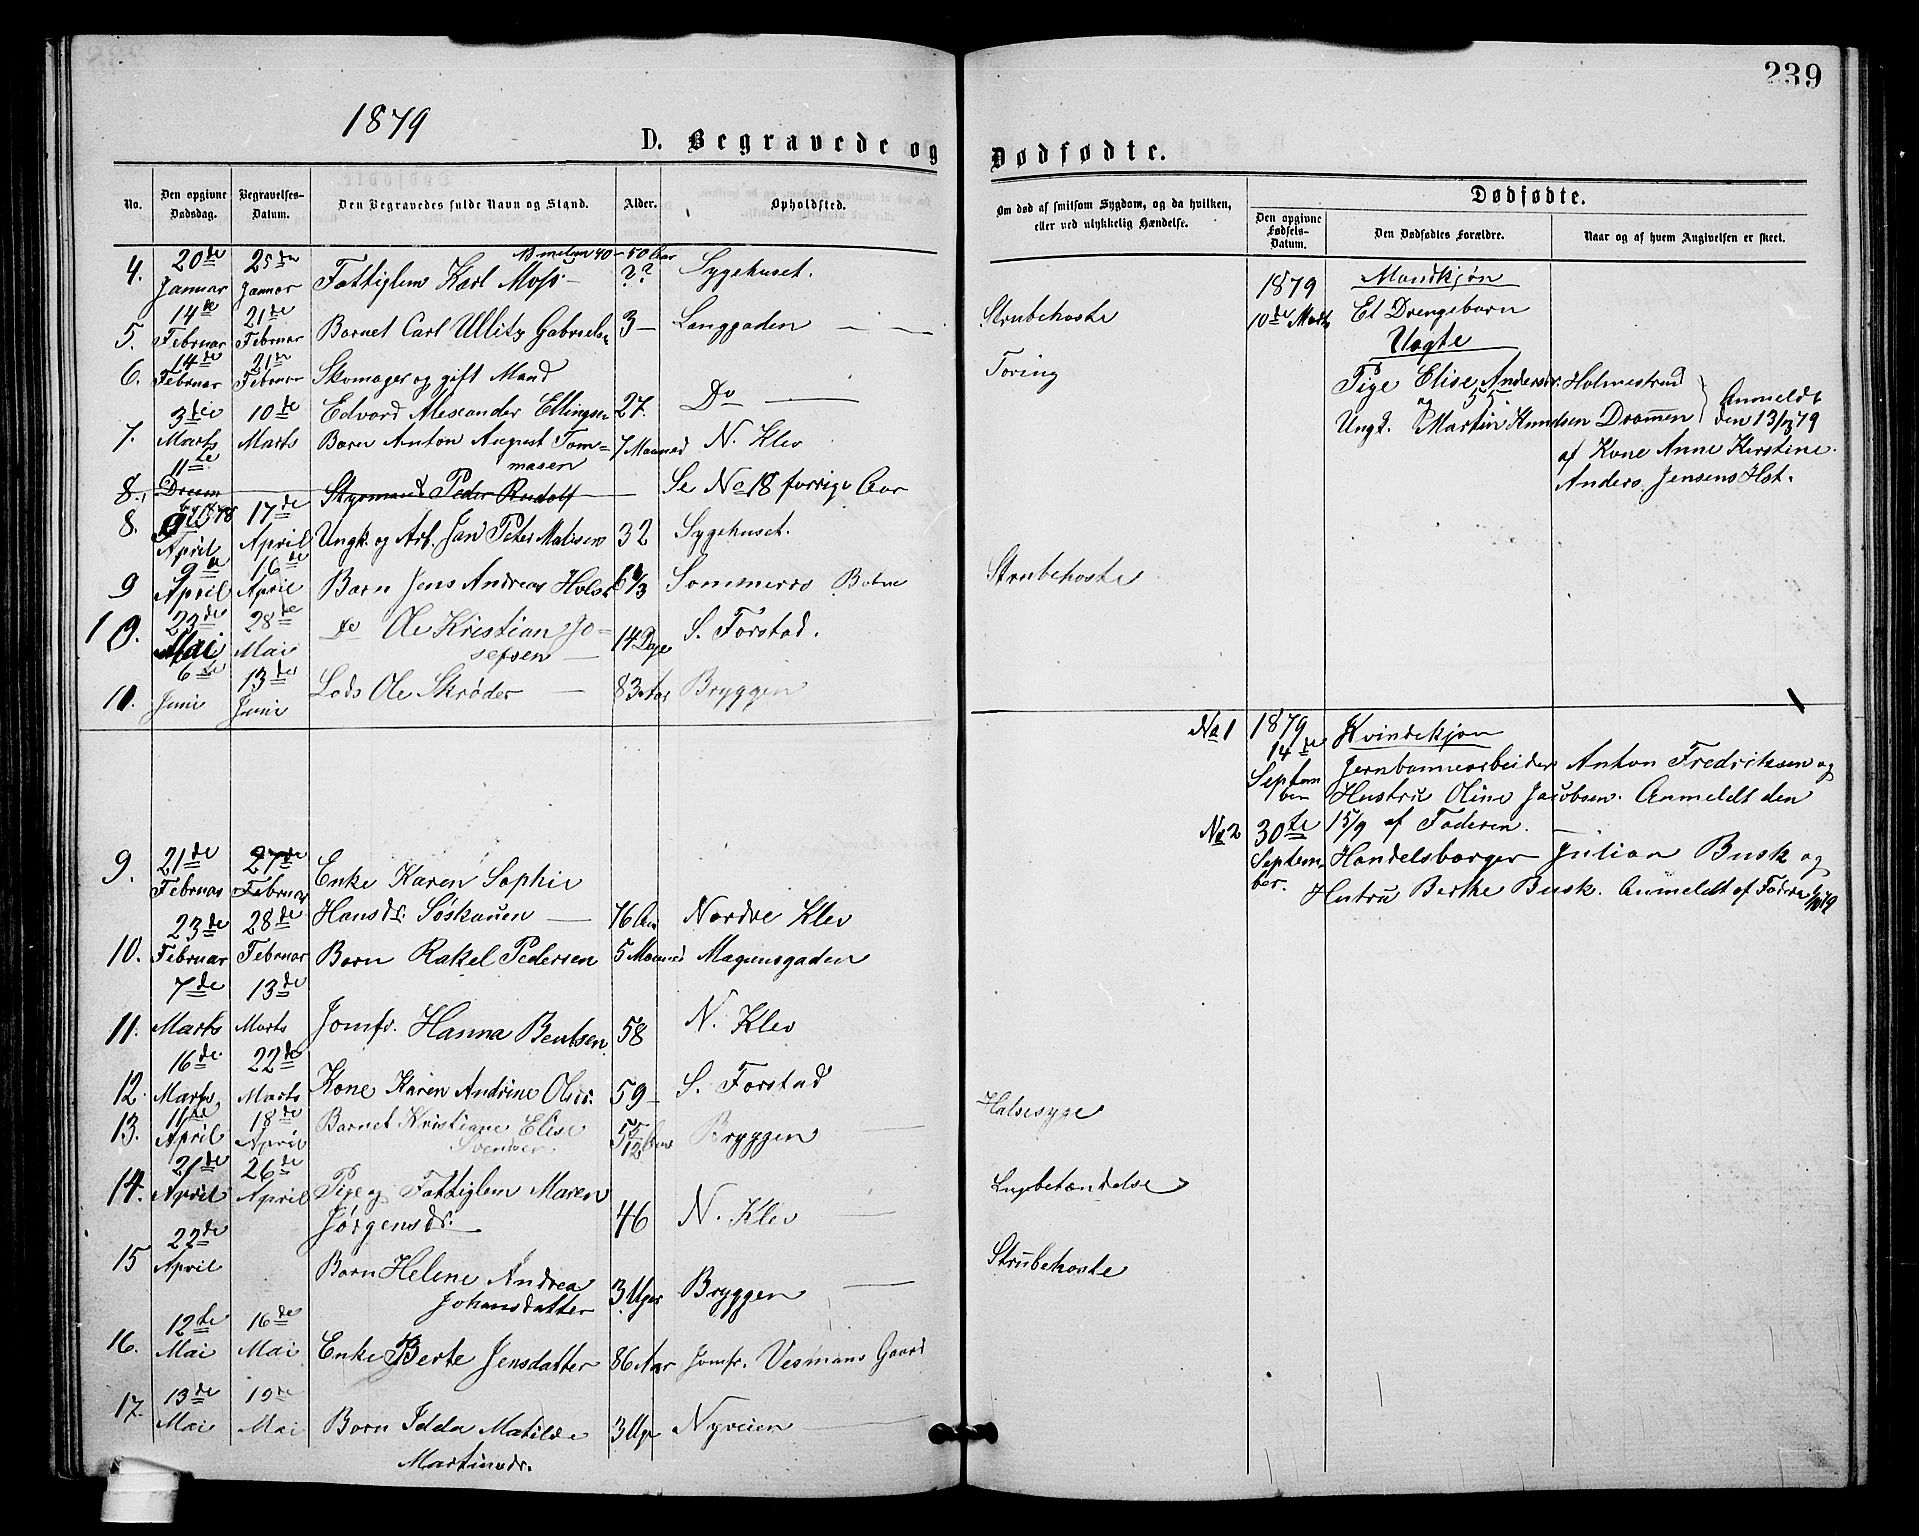 239
1879
D. Begravede og Dødfødte.
No. Den opgivne Dødsdag. Begravelses-Datum. Den Begravedes fulde Navn og Stand. Alder. Opholdsted.
4. 20de Januar 25de Januar Fattiglem Karl Moss – mellem 40–50 Aar ?? Sygehuset.
5. 14de Februar 21de Februar Barnet Carl Ullitz Gabrielsn 3 – Langgaden –
6. 14de Februar 21de Februar Skomager og gift Mand
Edvard Alexander Ellingsn 27. Do –
7. 3die Marts 10de Marts Barn Anton August Tom-
masen 7 Maaned N. Klev
8. 11te Decem Styrmand Peder Rudolf – Se No 18 forrige Aar
8. April 17de April Ungk. og Arb. Jan Peter Matisen 32 Sygehuset.
9 9de April 16de April Barn Jens Andreas Holst Sommerro
10. 23de Mai 28de Mai do Ole Kristian Jo-
sefsen – 14 Dage S. Forstad.
11. 6te Juni 13de Juni Lods Ole Skrøder – 83 Aar Bryggen
9. 21de Februar 27de Februar Enke Karen Sophie
Hansdr. Søskauen – 76 Aar Nordre Klev
10. 23de Februar 28de Februar Barn Rakel Pedersen 5 Maaned Magnusgaden
11. 7de Marts 13de Marts Jomfr. Hanna Bentsen 58 N. Klev
12. 16de Marts 22de Marts Kone Karen Andrine Olsdr. 59 – S. Forstad
13. 11te April 18de April Barnet Kristiane Elise
Svendsen 5/12 Aar Bryggen –
14. 21de April 26de April Pige og Fattiglem Maren
Jørgensdr. – 46 N. Klev –
15 22de April Barn Helene Andrea
Johansdatter 3 Uger Bryggen –
16. 12te Mai 16de Mai Enke Berte Jensdatter 86 Aar Jomfr. Vesmans Gaard
17. 13de Mai 19de Mai Barn Idda Matilde 3 Ugr Nyveien
Martinsdr.
Om død af smitsom Sygdom, og da hvilken,
eller ved ulykkelig Hændelse.
Dødfødte.
Den opgivne Fødsels-Datum. Den Dødfødtes Forældre. Naar og af hvem Angivelsen er skeet.
Strubehoste
Tæring
Strubehoste
Halsesyge
Strubehoste
1879 Mandkjøn
10de Marts Et Drengebarn
Uægte
Pige Elise Andersdr. Holmestrand
og
Ungk. Martin Knudsen Dramen
Anmeldt
den 13/3 79
af Kone Anne Kerstine
Anders Jensens Hst.
No 1 1879 Kvindekjøn
14de September Jernbanearbeider Anton Fredriksen og
Hustru Oline Jacobsen. Anmeldt den
15/9 af Faderen.
No 2 30te September. Handelsborger Julian Busk og
Hustru Berthe Busk. Anmeldt af Fadren